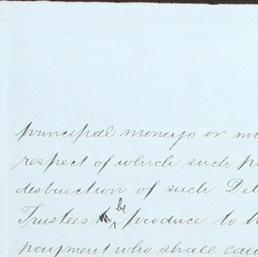 principal moneys or
respect of which such
destruction of such
Trustees be produce to
payment who shall